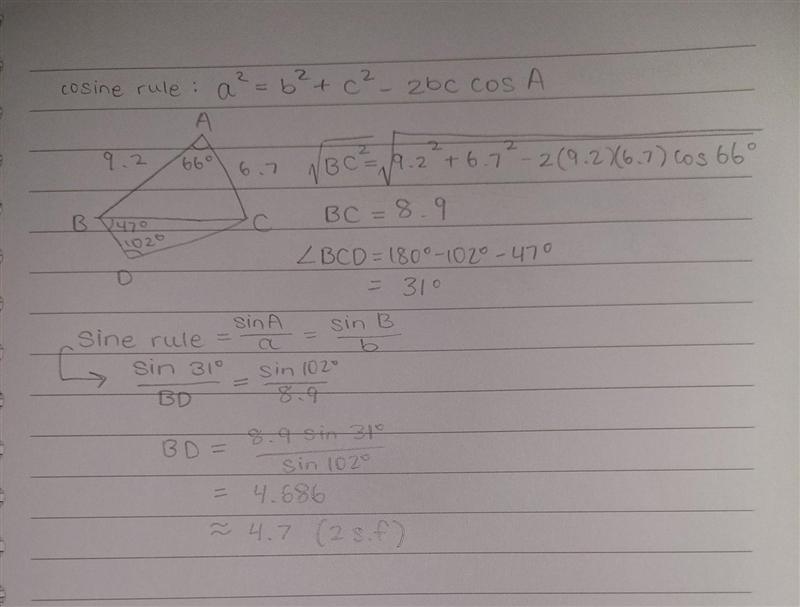 cosine rule : a² = b² + c² - 2bc cos A
A
9.2 66° 6.7 √BC² = √9.2² + 6.7² - 2(9.2)(6.7) cos 66°
B 47° C BC = 8.9
102°
D ∠BCD = 180° - 102° - 47°
= 31°
Sine rule = sin A / a = sin B / b
↳ sin 31° / BD = sin 102° / 8.9
BD = 8.9 sin 31° / sin 102°
= 4.686
≈ 4.7 (2 s.f)